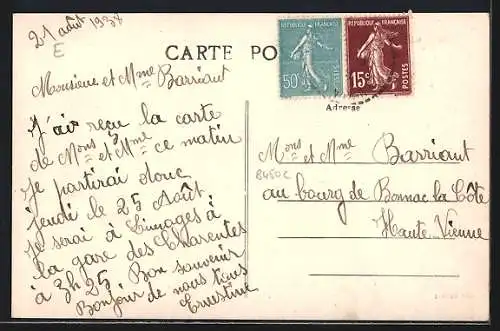 21 août 1938
E
CARTE PO
RÉPUBLIQUE FRANÇAISE
50c
POSTES
RÉPUBLIQUE FRANÇAISE
15c
POSTES
Adresse
Monsieur et Mme Barriant
J'ai reçu la carte
de Mons et Mme ce matin
Je partirai donc
jeudi le 25 Août
Je serai à Limoges à
la gare des Charentes
à 3h 25 Bon souvenir
Bonjour de nous tous
Ernestine
Mons et Mme Barriant
8450C
au bourg de Bonnac la Côte
Haute Vienne